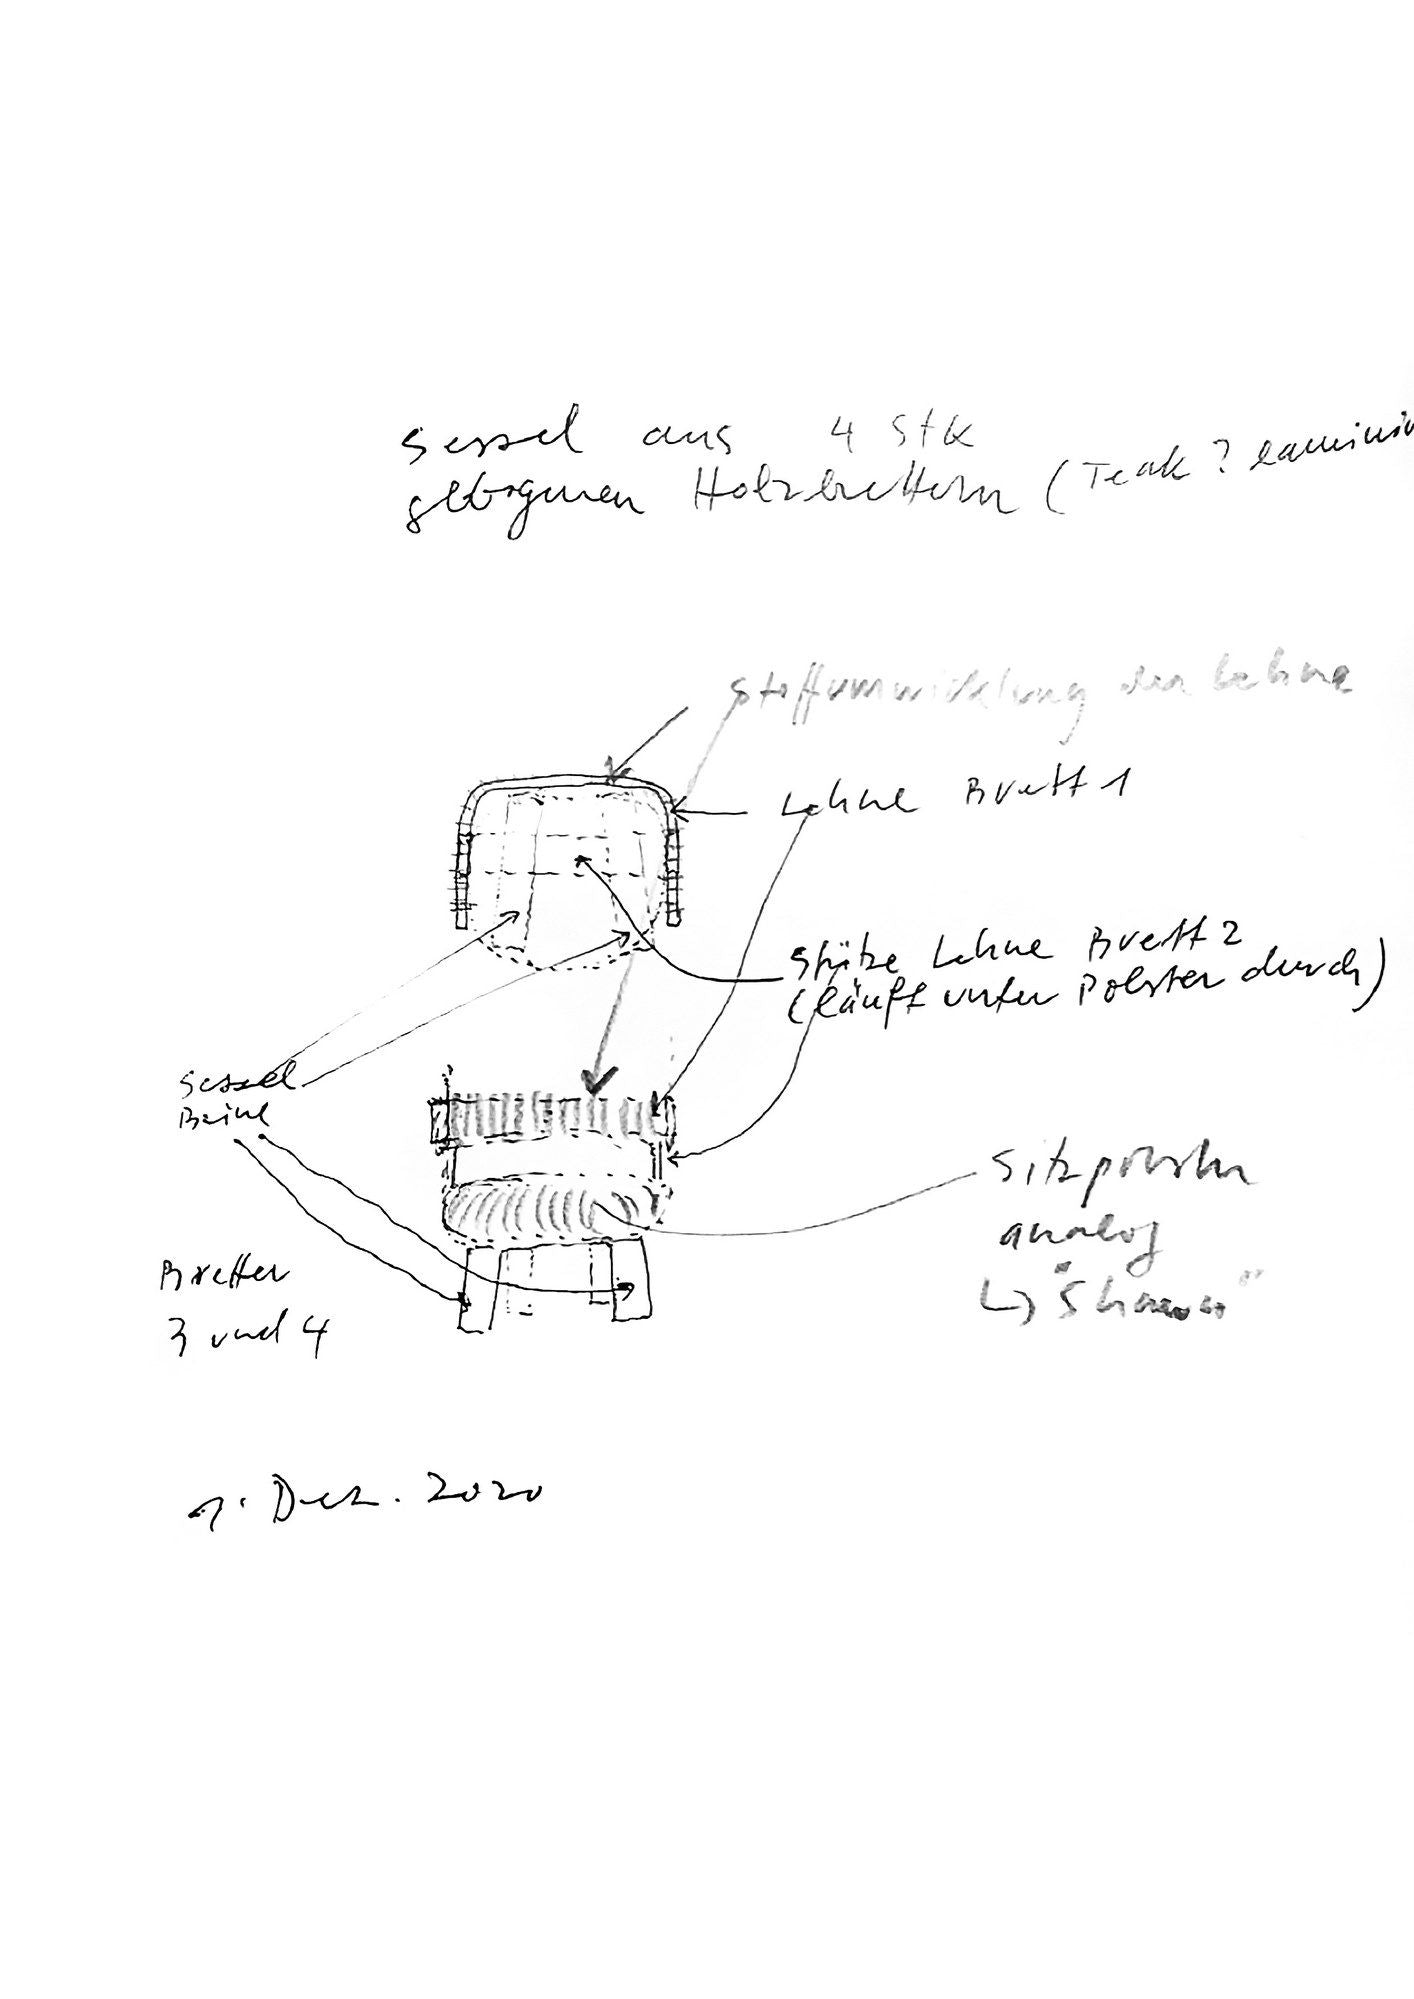 Sessel aus 4 Stk
gebogenen Holzbrettern (Teak?
Stoffumwicklung der Lehne
Lehne Brett 1
Stütze Lehne Brett 2
(läuft unter Polster durch)
Sessel
Beine
Sitzpolster
analog
Bretter
3 und 4
1. Dez. 2020